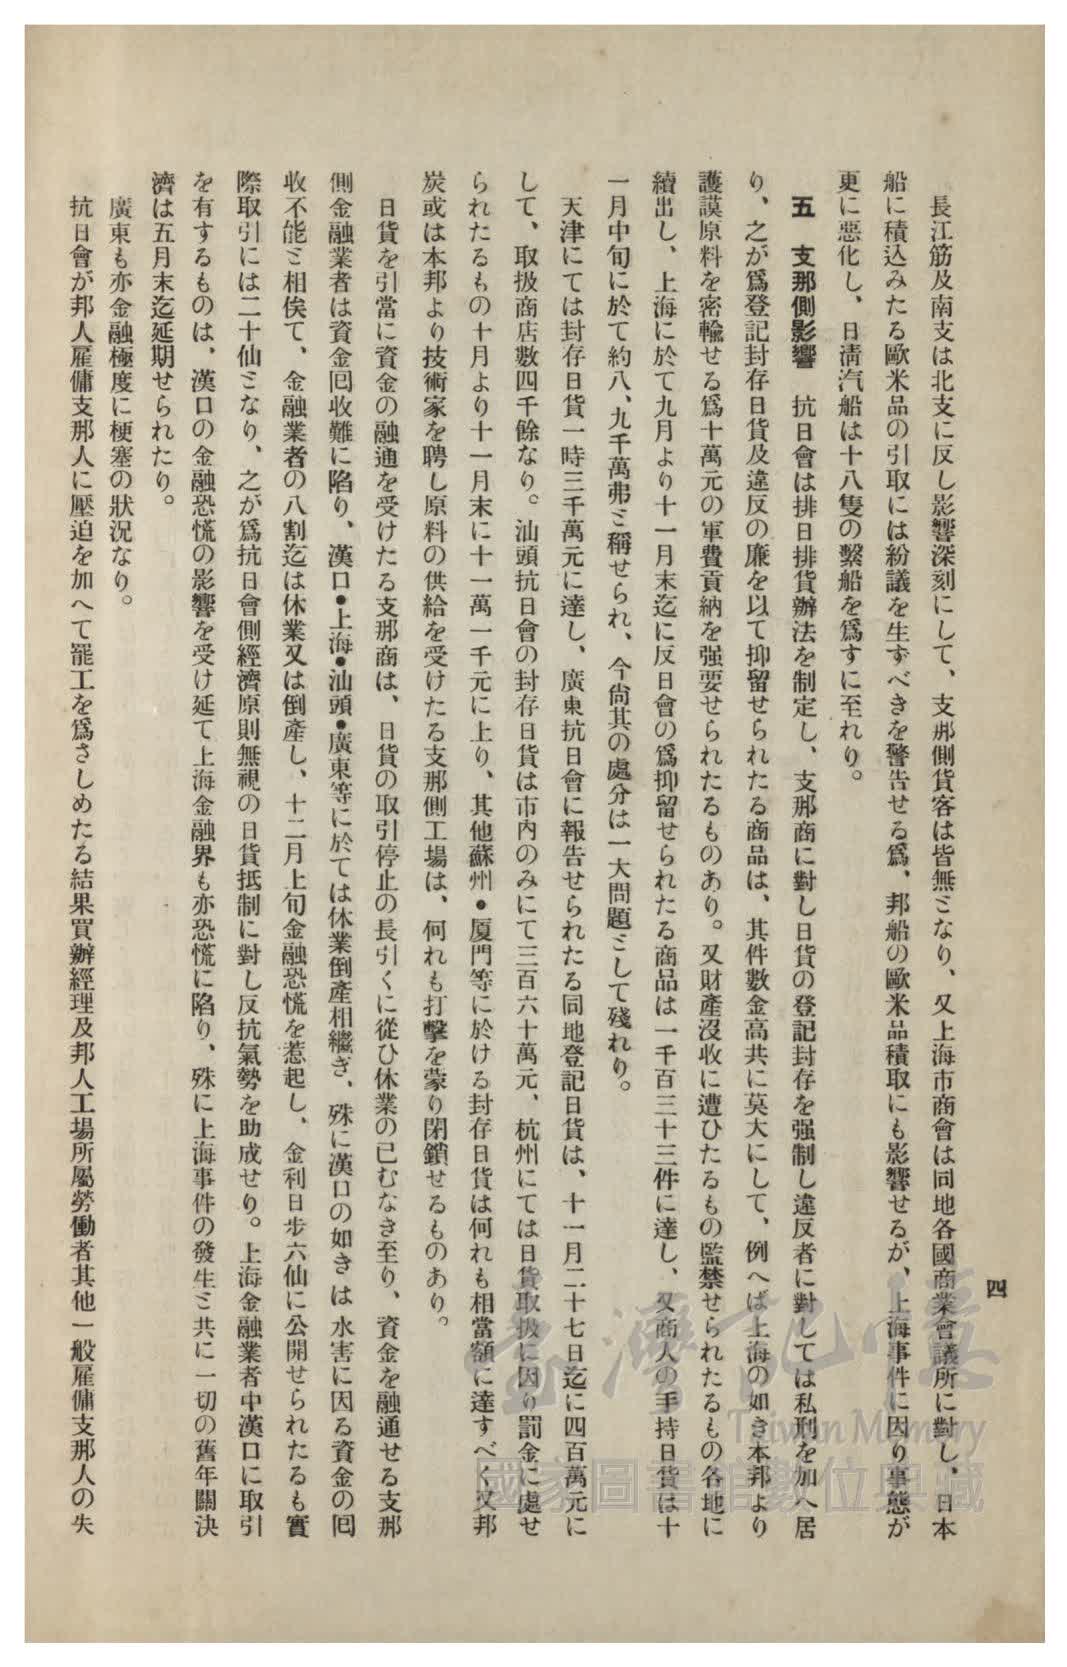 四
長江筋及南支は北支に反し影響深刻にして、支那側貨客は皆無ミなり、又上海市商會は同地各國商業會議所に對し、日本
船に積込みたる歐米品の引取には紛議を生ずべきを警告せる爲、邦船の歐米品積取にも影響せるが、上海事件に因り事態が
更に惡化し、日淸汽船は十八隻の繫船を爲すに至れり。
五 支那側影響 抗日會は排日排貨辦法を制定し、支那商に對し日貨の登記封存を强制し違反者に對しては私刑を加へ居
り、之が爲登記封存日貨及違反の廉を以て抑留せられたる商品は、其件數金高共に莫大にして、例へば上海の如き本邦より
護謨原料を密輸せる爲十萬元の軍費貢納を强要せられたるものあり。又財產沒收に遭ひたるもの監禁せられたるもの各地に
續出し、上海に於て九月より十一月末迄に反日會の爲抑留せられたる商品は一千百三十三件に達し、又商人の手持日貨は十
一月中旬に於て約八、九千萬弗ミ稱せられ、今尙其の處分は一大問題ミして殘れり。
天津にては封存日貨一時三千萬元に達し、廣東抗日會に報告せられたる同地登記日貨は、十一月二十七日迄に四百萬元に
して、取扱商店數四千餘なり。汕頭抗日會の封存日貨は市內のみにて三百六十萬元、杭州にては日貨取扱に因り罰金に處せ
られたるもの十月より十一月末に十一萬一千元に上り、其他蘇州•厦門等に於ける封存日貨は何れも相當額に達すべく又邦
炭或は本邦より技術家を聘し原料の供給を受けたる支那側工場は、何れも打擊を蒙り閉鎖せるものあり。
日貨を引當に資金の融通を受けたる支那商は、日貨の取引停止の長引くに從ひ休業の已むなき至り、資金を融通せる支那
側金融業者は資金囘收難に陷り、漢口•上海•汕頭•廣東等に於ては休業倒產相繼ぎ、殊に漢口の如きは水害に因る資金の囘
收不能ミ相俟て、金融業者の八割迄は休業又は倒產し、十二月上旬金融恐慌を惹起し、金利日步六仙に公開せられたるも實
際取引には二十仙ミなり、之が爲抗日會側經濟原則無視の日貨抵制に對し反抗氣勢を助成せり。上海金融業者中漢口に取引
を有するものは、漢口の金融恐慌の影響を受け延て上海金融界も亦恐慌に陷り、殊に上海事件の發生ミ共に一切の舊年關決
濟は五月末迄延期せられたり。
廣東も亦金融極度に梗塞の狀況なり。
抗日會が邦人雇傭支那人に壓迫を加へて罷工を爲さしめたる結果買辦經理及邦人工場所屬勞働者其他一般雇傭支那人の失
臺灣記憶
Taiwan Memory
國家圖書館數位典藏